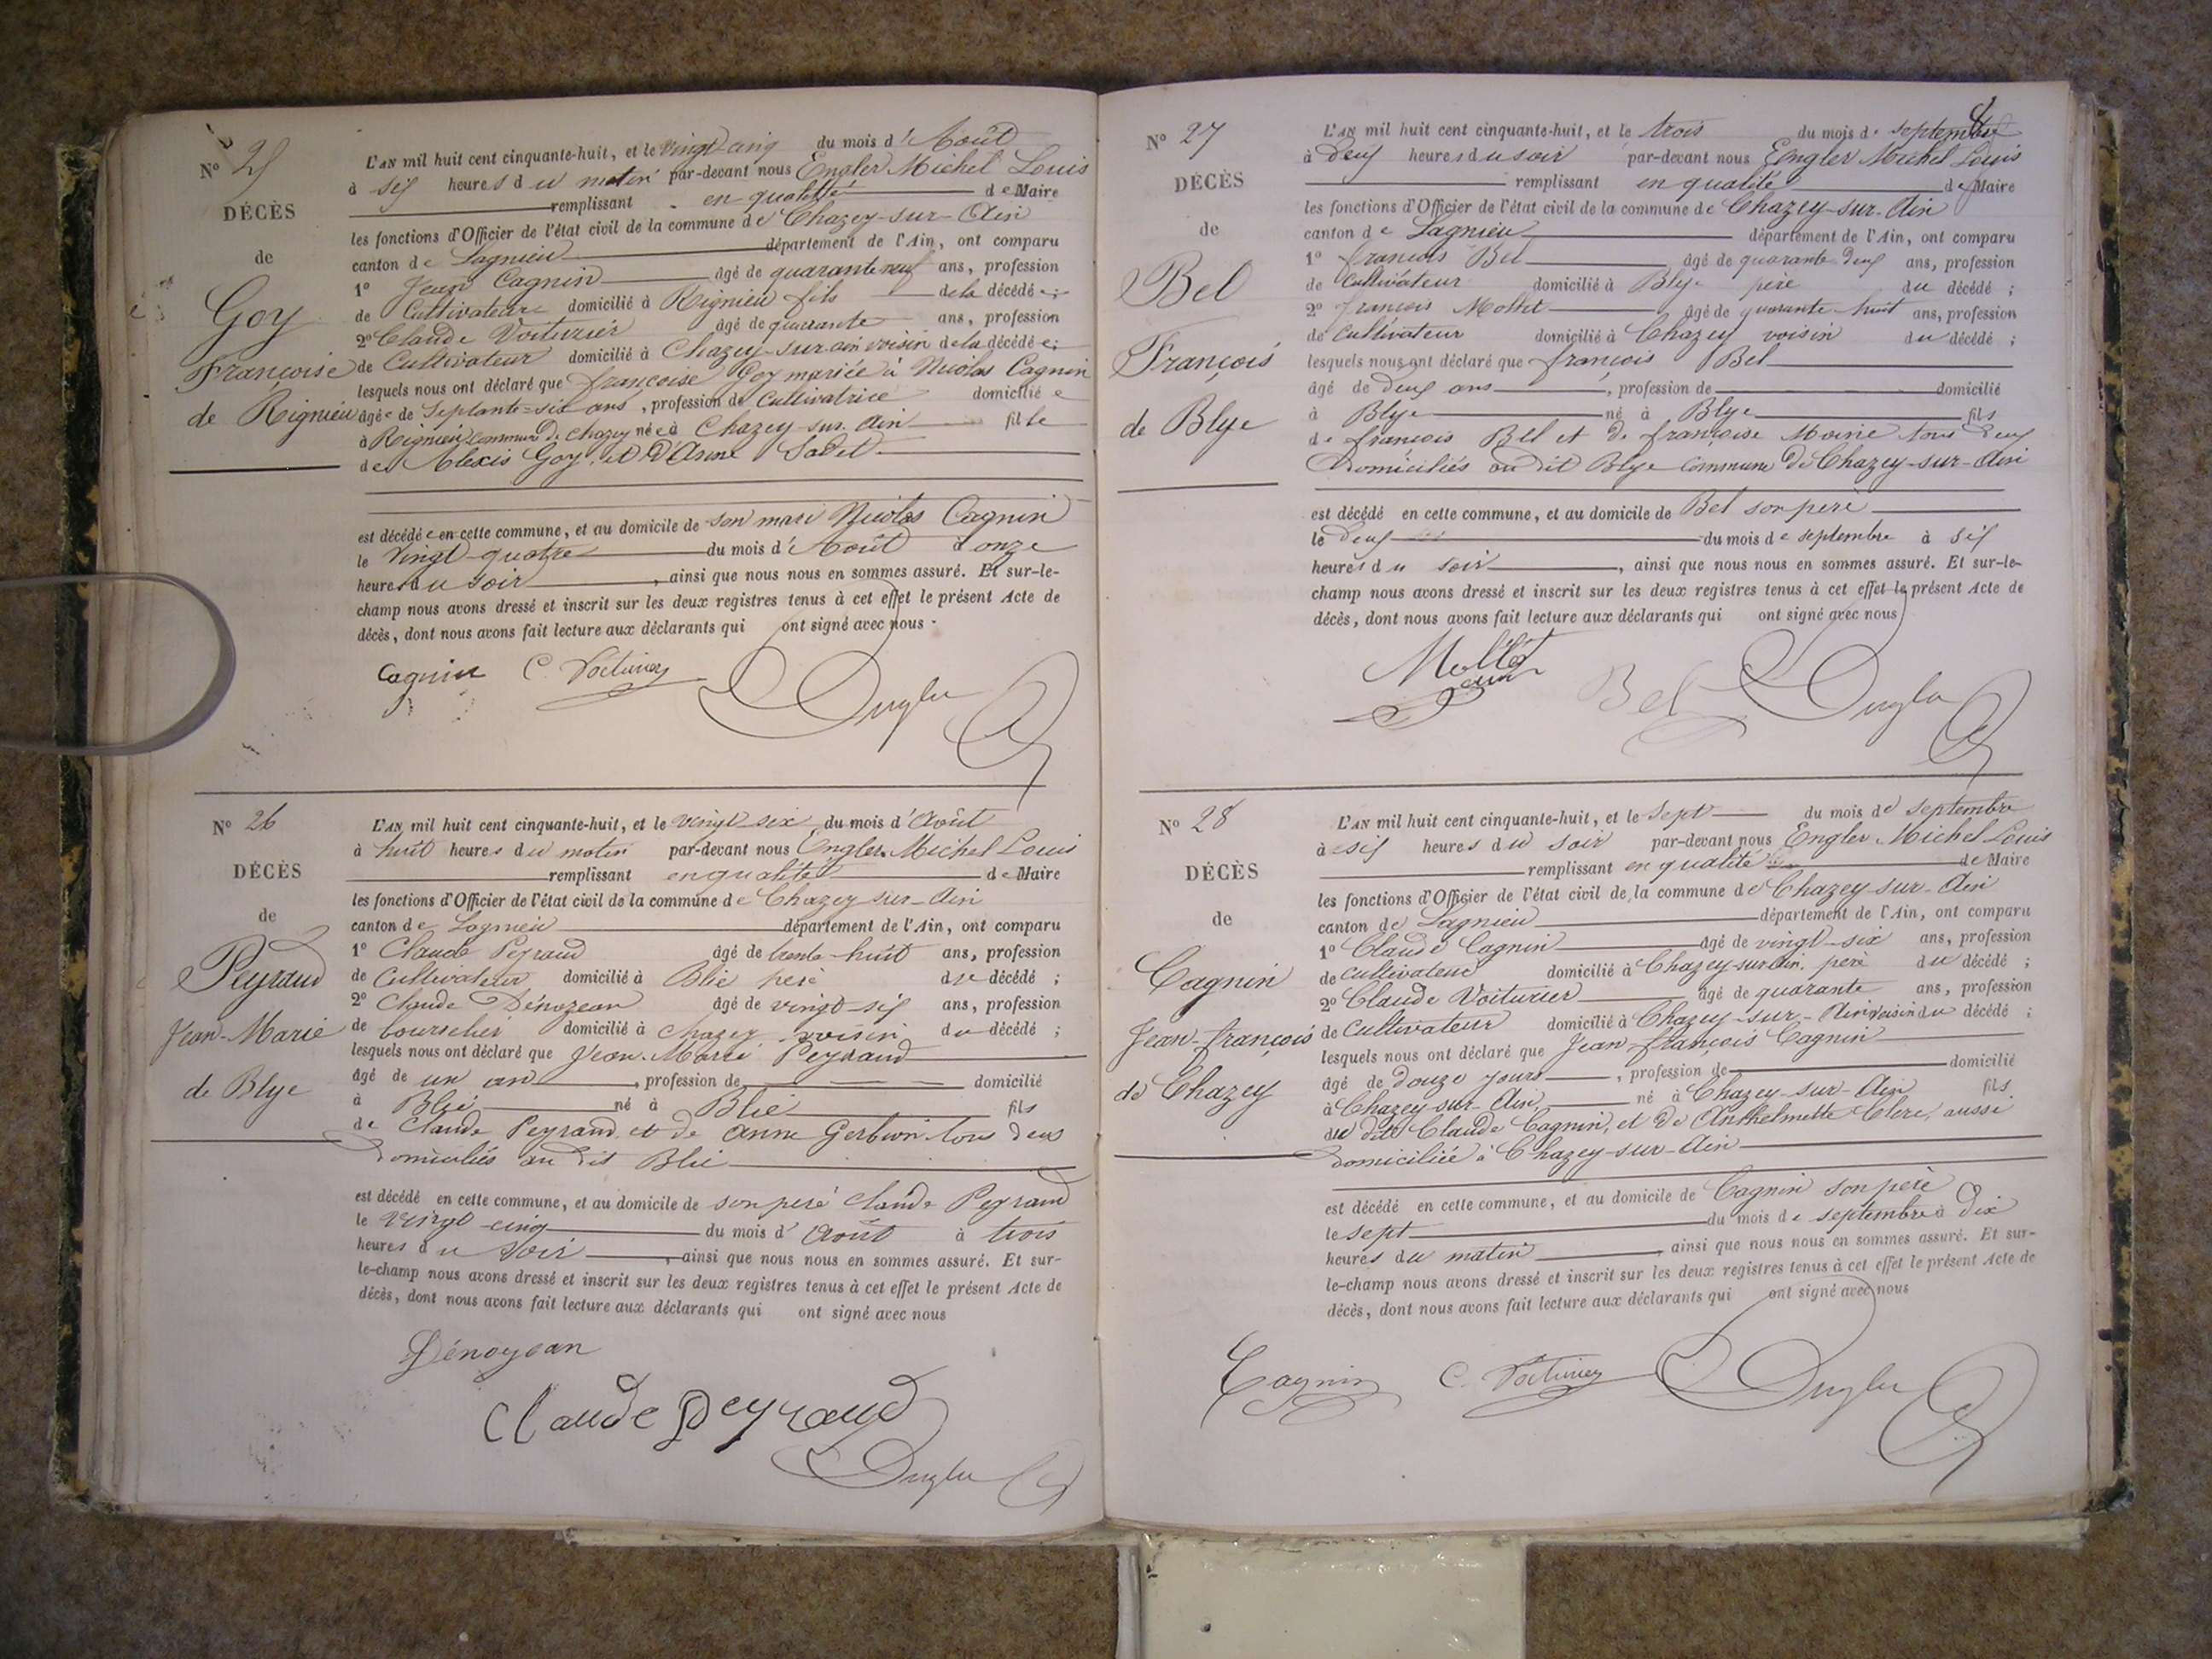 N° 25
DÉCÈS
de
Goy
Françoise
de Rignieu
L'AN mil huit cent cinquante-huit, et le vingt cinq du mois d'Août
à six heures du matin par-devant nous Engler Michel Louis
remplissant en qualité de Maire
les fonctions d'Officier de l'état civil de la commune de Chazey-sur-Ain
canton de Lagnieu département de l'Ain, ont comparu
1° Jean Cagnin âgé de quarante neuf ans, profession
de Cultivateur domicilié à Rignieu fils de la décédée ;
2° Claude Voiturier âgé de quarante ans, profession
de Cultivateur domicilié à Chazey-sur ain voisin de la décédée ;
lesquels nous ont déclaré que françoise Goy mariée à Nicolas Cagnin
âgée de Septante-six ans, profession de Cultivatrice domiciliée
à Rignieu commune de Chazey née à Chazey-sur-Ain fille
de Alexis Goy, et d'Anne
est décédée en cette commune, et au domicile de son mari Nicolas Cagnin
le vingt-quatre du mois d'Août à onze
heures du soir, ainsi que nous nous en sommes assuré. Et sur-le-
champ nous avons dressé et inscrit sur les deux registres tenus à cet effet le présent Acte de
décès, dont nous avons fait lecture aux déclarants qui ont signé avec nous.
Cagnin C. Voiturier Engler
N° 26
DÉCÈS
de
Peyraud
Jean-Marie
de Blye
L'AN mil huit cent cinquante-huit, et le vingt six du mois d'Août
à huit heures du matin par-devant nous Engler Michel Louis
remplissant en qualité de Maire
les fonctions d'Officier de l'état civil de la commune de Chazey-sur-Ain
canton de Lagnieu département de l'Ain, ont comparu
1° Claude Peyraud âgé de trente-huit ans, profession
de Cultivateur domicilié à Blie père du décédé ;
2° Claude Dénozean âgé de vingt-six ans, profession
de bourrelier domicilié à Chazey voisin du décédé ;
lesquels nous ont déclaré que Jean-Marie Peyraud
âgé de un an, profession de domicilié
à Blie né à Blie fils
de Claude Peyraud et de Anne Gerbion tous deux
domiciliés au dit Blie
est décédé en cette commune, et au domicile de son père Claude Peyraud
le vingt-cinq du mois d'Août à trois
heures du soir, ainsi que nous nous en sommes assuré. Et sur-
le-champ nous avons dressé et inscrit sur les deux registres tenus à cet effet le présent Acte de
décès, dont nous avons fait lecture aux déclarants qui ont signé avec nous
Dénoyean
Claude Peyraud
Engler
N° 27
DÉCÈS
de
Bel
François
de Blye
L'AN mil huit cent cinquante-huit, et le trois du mois de septembre
à deux heures du soir par-devant nous Engler Michel Louis
remplissant en qualité de Maire
les fonctions d'Officier de l'état civil de la commune de Chazey-sur-Ain
canton de Lagnieu département de l'Ain, ont comparu
1° françois Bel âgé de quarante deux ans, profession
de Cultivateur domicilié à Blye père du décédé ;
2° françois Mollet âgé de quarante huit ans, profession
de Cultivateur domicilié à Chazey voisin du décédé ;
lesquels nous ont déclaré que françois Bel
âgé de deux ans, profession de domicilié
à Blye né à Blye fils
de françois Bel et de françoise Moine tous deux
domiciliés au dit Blye commune de Chazey-sur-Ain
est décédé en cette commune, et au domicile de Bel son père
le deux du mois de septembre à six
heures du soir, ainsi que nous nous en sommes assuré. Et sur-le-
champ nous avons dressé et inscrit sur les deux registres tenus à cet effet le présent Acte de
décès, dont nous avons fait lecture aux déclarants qui ont signé avec nous
Mollet Bel Engler
N° 28
DÉCÈS
de
Cagnin
Jean-françois
de Chazey
L'AN mil huit cent cinquante-huit, et le sept du mois de septembre
à six heures du soir par-devant nous Engler Michel Louis
remplissant en qualité de Maire
les fonctions d'Officier de l'état civil de la commune de Chazey-sur-Ain
canton de Lagnieu département de l'Ain, ont comparu
1° Claude Cagnin âgé de vingt-six ans, profession
de cultivateur domicilié à Chazey-sur Ain. père du décédé ;
2° Claude Voiturier âgé de quarante ans, profession
de Cultivateur domicilié à Chazey-sur-Ain voisin du décédé ;
lesquels nous ont déclaré que Jean françois Cagnin
âgé de douze jours, profession de domicilié
à Chazey-sur-Ain, né à Chazey-sur-Ain fils
du dit Claude Cagnin, et de Anthelmette Clerc, aussi
domiciliée à Chazey-sur-Ain
est décédé en cette commune, et au domicile de Cagnin son père
le sept du mois de septembre à dix
heures du matin, ainsi que nous nous en sommes assuré. Et sur-
le-champ nous avons dressé et inscrit sur les deux registres tenus à cet effet le présent Acte de
décès, dont nous avons fait lecture aux déclarants qui ont signé avec nous
Cagnin C. Voiturier Engler